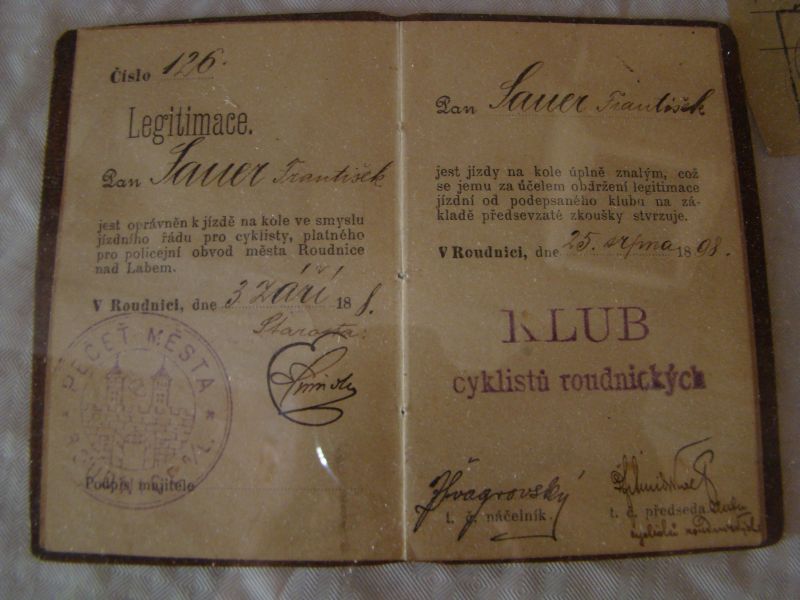 Číslo 126.
Legitimace.
Pan Sauer František
jest oprávněn k jízdě na kole ve smyslu
jízdního řádu pro cyklisty, platného
pro policejní obvod města Roudnice
nad Labem.
V Roudnici, dne 3 Září 18 8.
Starosta:
PEČEŤ MĚSTA
Podpis majitele
Pan Sauer František
jest jízdy na kole úplně znalým, což
se jemu za účelem obdržení legitimace
jízdní od podepsaného klubu na zá-
kladě předsevzaté zkoušky stvrzuje.
V Roudnici, dne 25. srpna 1898.
KLUB
cyklistů roudnických
t. č. náčelník.
t. č. předseda